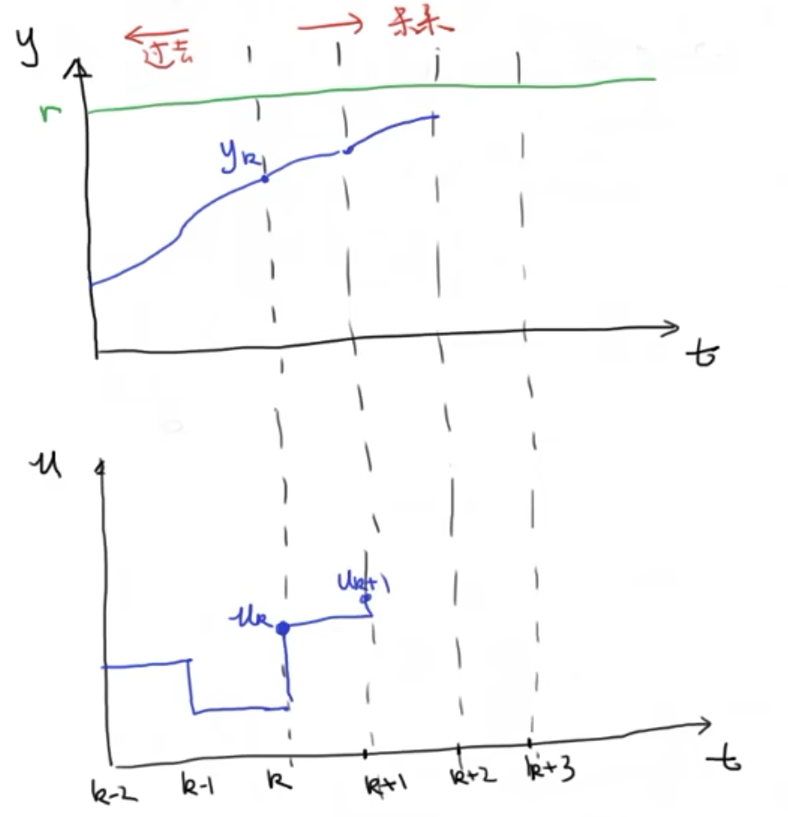 y
过去
未来
r
yk
t
u
uk
uk+1
k-2 k-1 k k+1 k+2 k+3
t